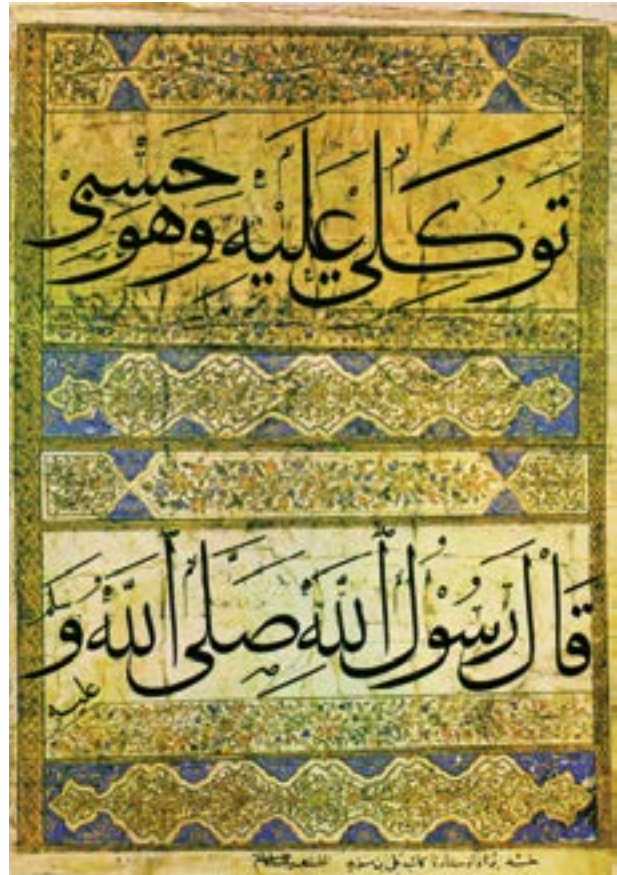 تَوَكُّلِي عَلَيْهِ وَهُوَ حَسْبِي
قَالَ رَسُولُ اللّٰهِ صَلَّى اللّٰهُ وَسَلَّمَ
عليه